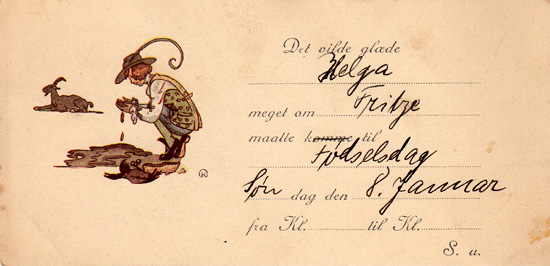 Det vilde glæde
Helga
meget om Fritze
maatte komme til
Fødselsdag
Søn dag den 8. Januar
fra Kl. til Kl.
S. u.